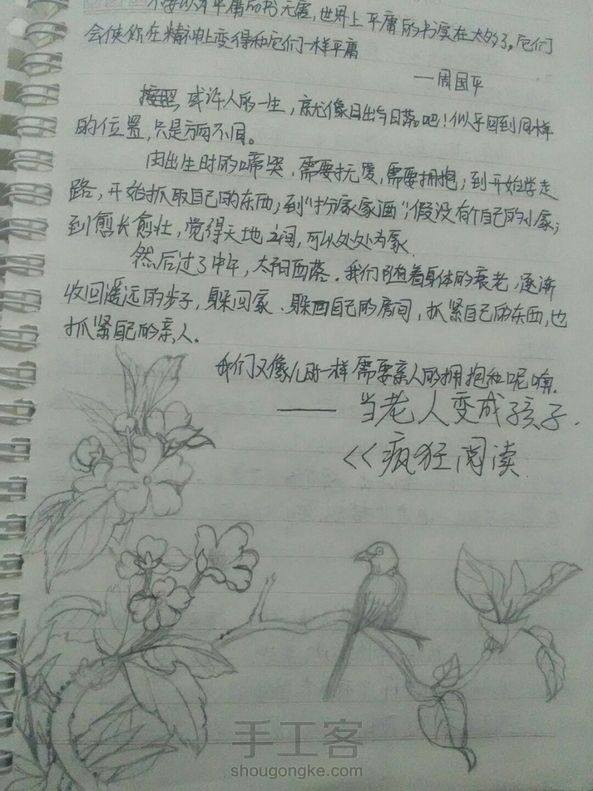 不要以为平庸的书无害，世界上平庸的书实在太多了。它们
会使你在精神上变得和它们一样平庸
——周国平
按照，或许人的一生，就像日出与日落吧！似乎回到同样
的位置，只是方向不同。
由出生时的啼哭，需要抚爱，需要拥抱；到开始学走
路，开始抓取自己的东西；到“扮家家酒”，假设有个自己的小家；
到愈长愈壮，觉得天地之间，可以处处为家。
然后过了中年，太阳西落。我们随着身体的衰老，逐渐
收回遥远的步子，躲回家、躲回自己的房间，抓紧自己的东西，也
抓紧自己的亲人。
我们又像儿时一样需要亲人的拥抱和呢喃。
——当老人变成孩子.
<<疯狂阅读
手工客
shougongke.com